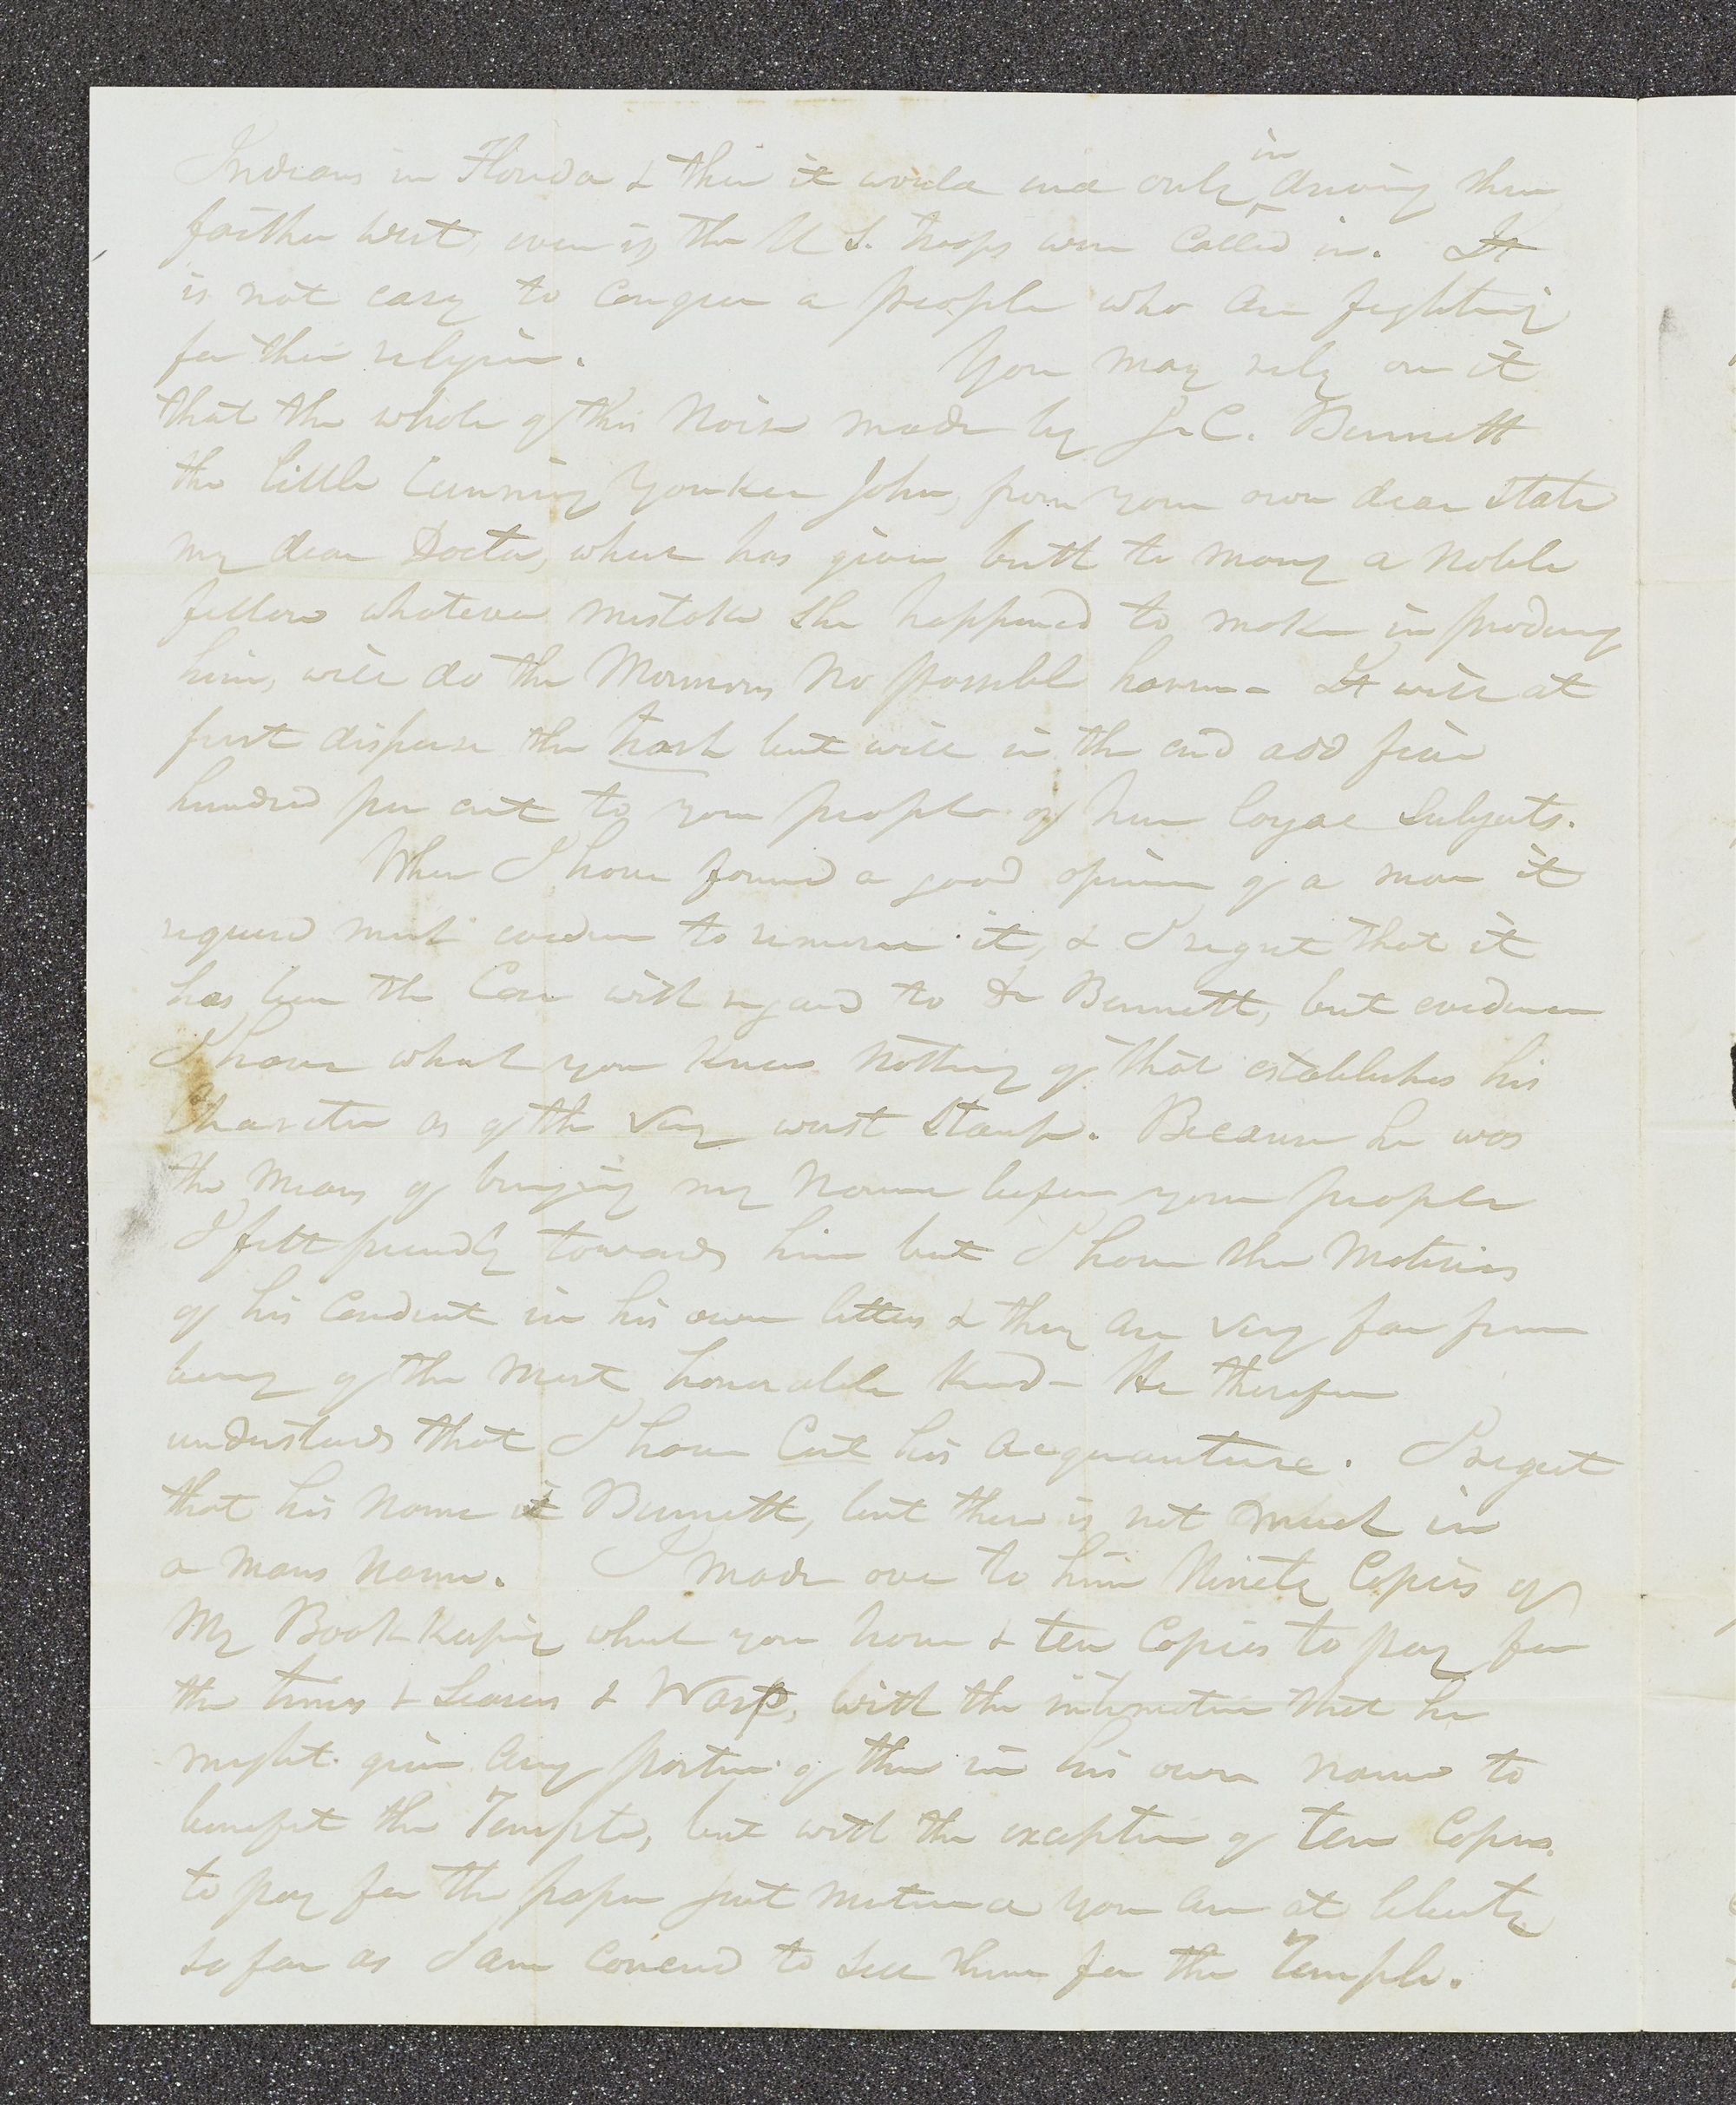 Indians in Florida & then it would end only in driving them
farther west, even if the U S. troops were called in. It
is not easy to conquer a people who are fighting
for their religion. You may rely on it
that the whole of this noise made by J. C. Bennett
the little cunning Yonker John, from your own dear State
my dear Doctor, which has given birth to many a noble
fellow whatever mistake she happened to make in producing
him, will do the Mormons no possible harm - It will at
first disperse the trash but will in the end add five
hundred per cent to your people of true loyal subjects.
When I have formed a good opinion of a man it
requires much evidence to remove it, & I regret that it
has been the case with regard to Dr Bennett, but evidence
I have which you know nothing of that establishes his
Character as of the very worst Stamp. Because he was
the means of bringing my name before your people
I felt friendly towards him but I have the motives
of his conduct in his own letters & they are very far from
being of the most honorable kind - He therefore
understands that I have cut his acquaintance. I regret
that his name is Bennett, but there is not much in
a mans name. I made over to him Ninety Copies of
My Book Keeping which you have & ten Copies to pay for
the times & Seasons & Wasp, with the intimation that he
might give any portion of them in his own name to
benefit the Temple, but with the exception of ten Copies
to pay for the paper just mentioned you are at liberty
so far as I am concerned to sell them for the Temple.